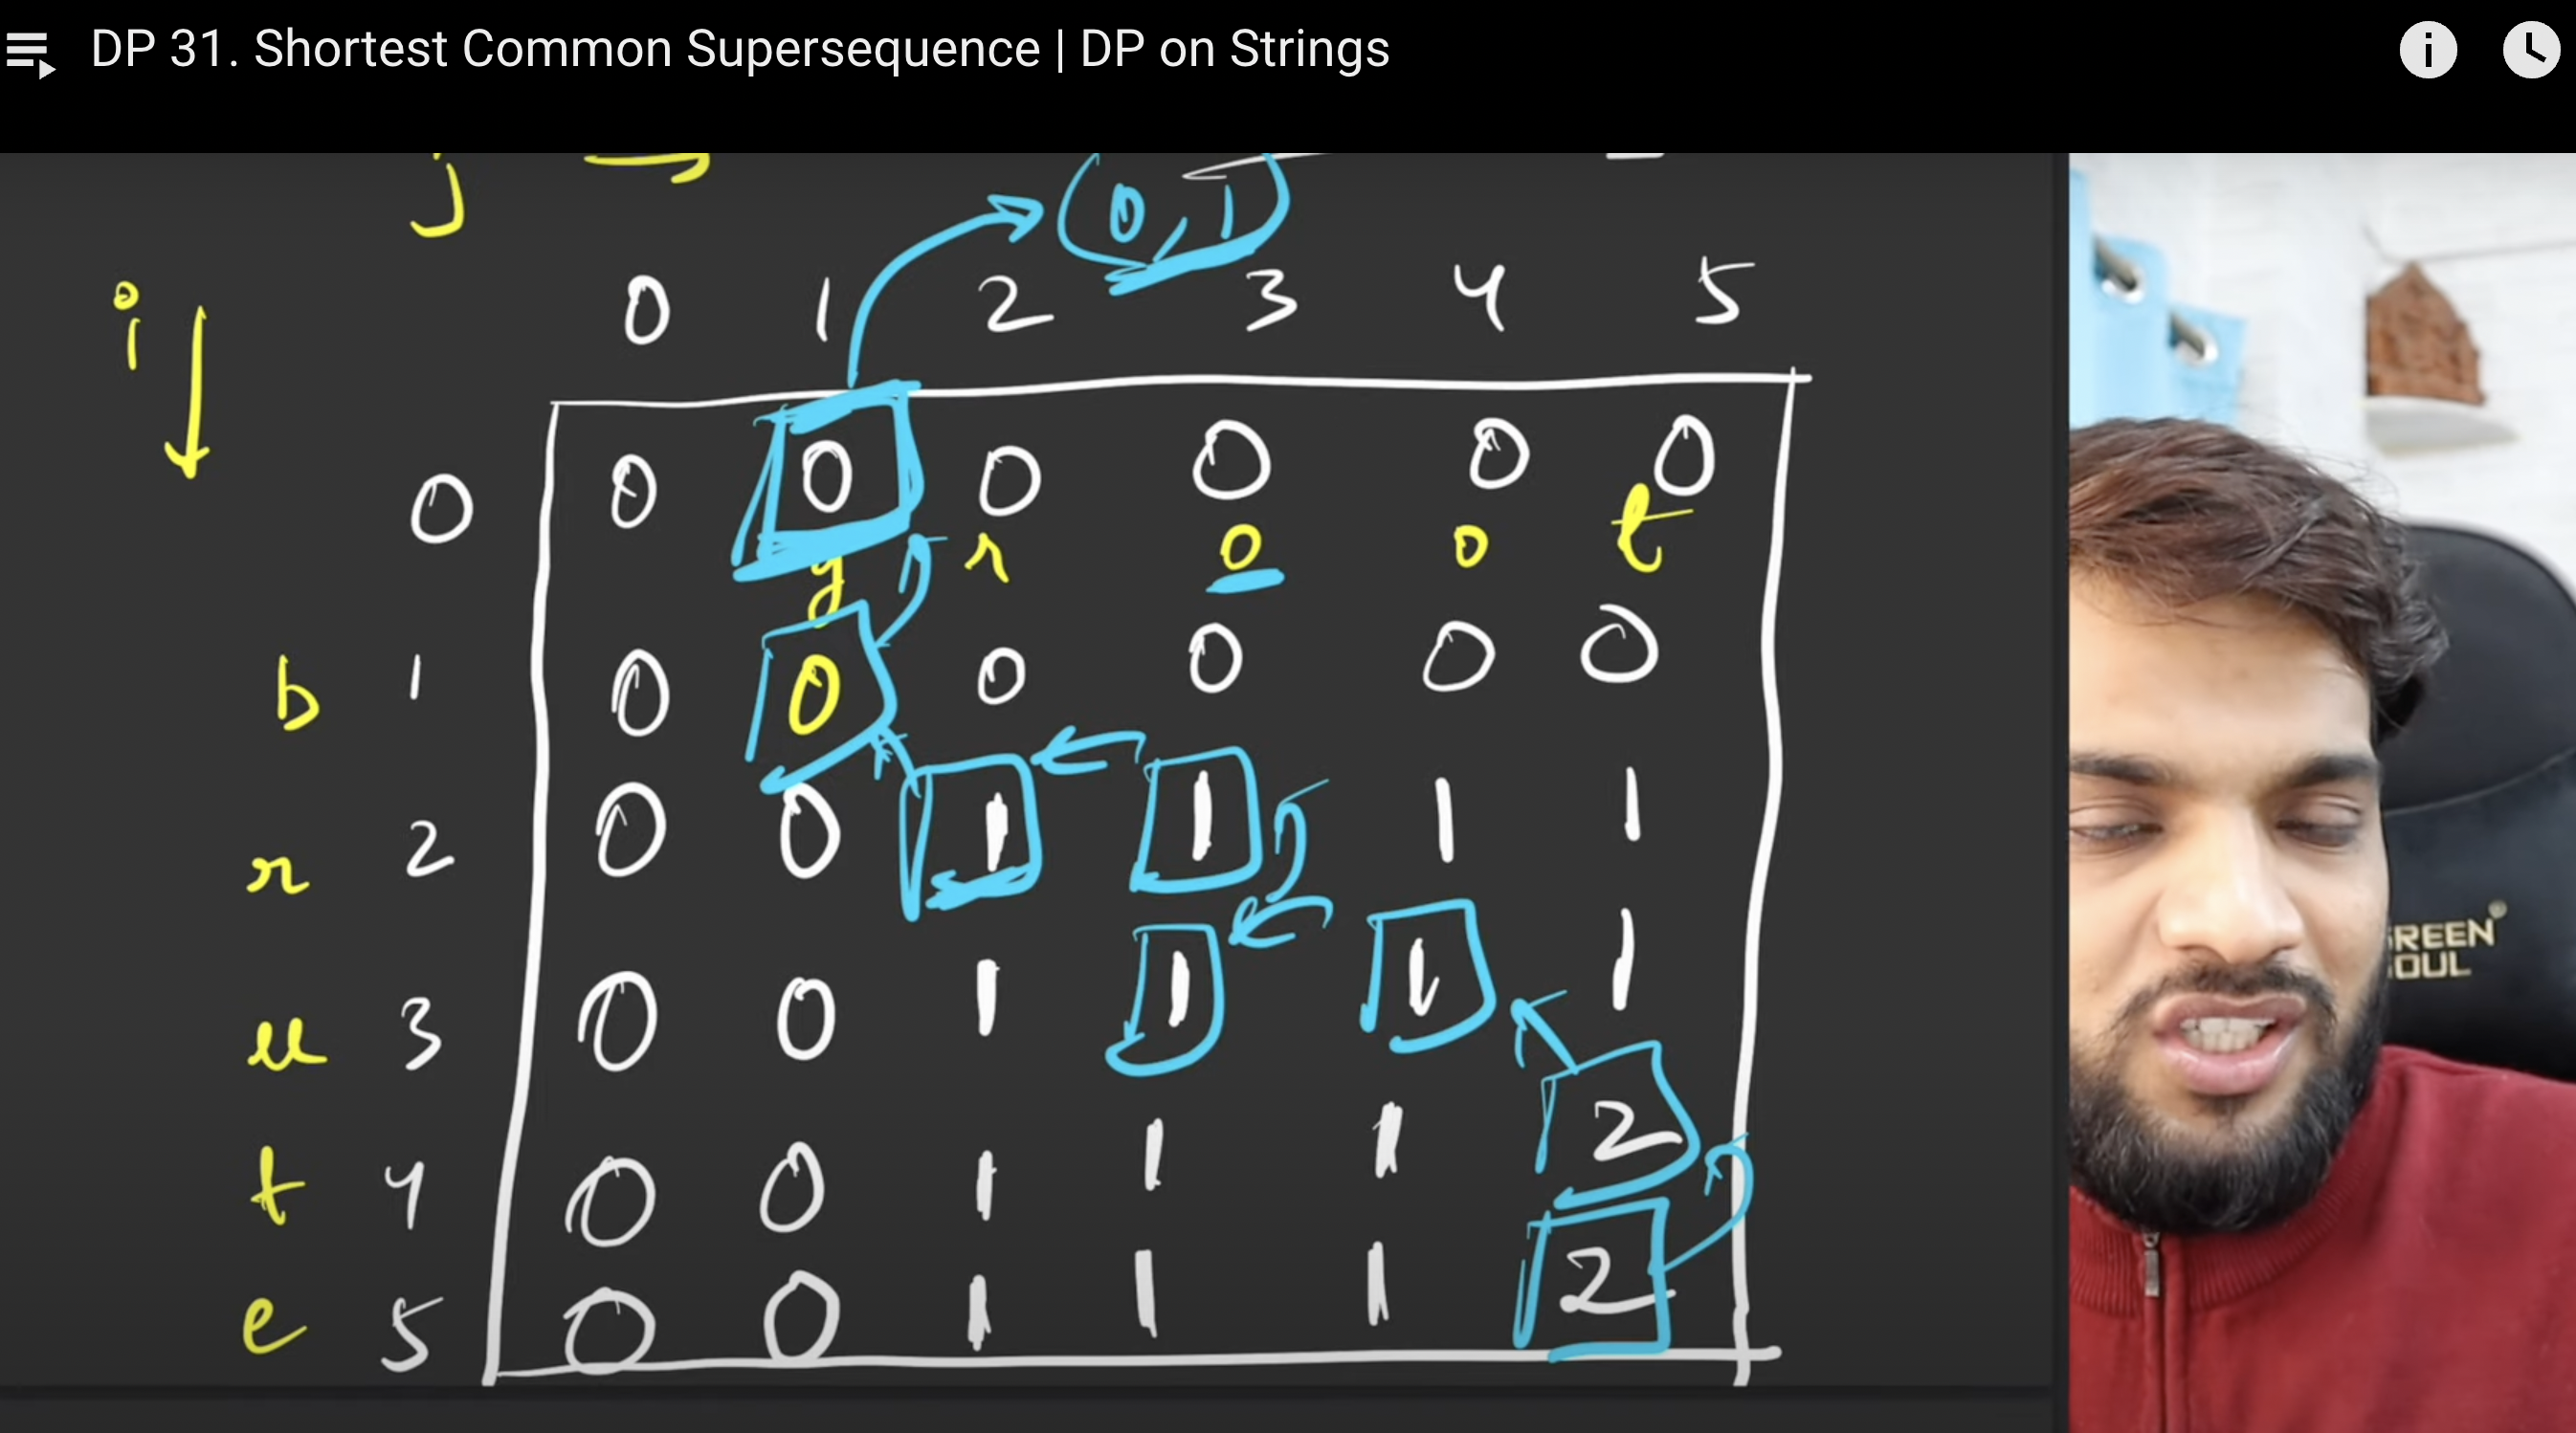 DP 31. Shortest Common Supersequence | DP on Strings
i
j
(0,1)
i
0 1 2 3 4 5
0 0 0 0 0 0 0
g r o o t
b 1 0 0 0 0 0 0
r 2 0 0 1 1 1 1
u 3 0 0 1 1 1 1
t 4 0 0 1 1 1 2
e 5 0 0 1 1 1 2
GREEN
SOUL